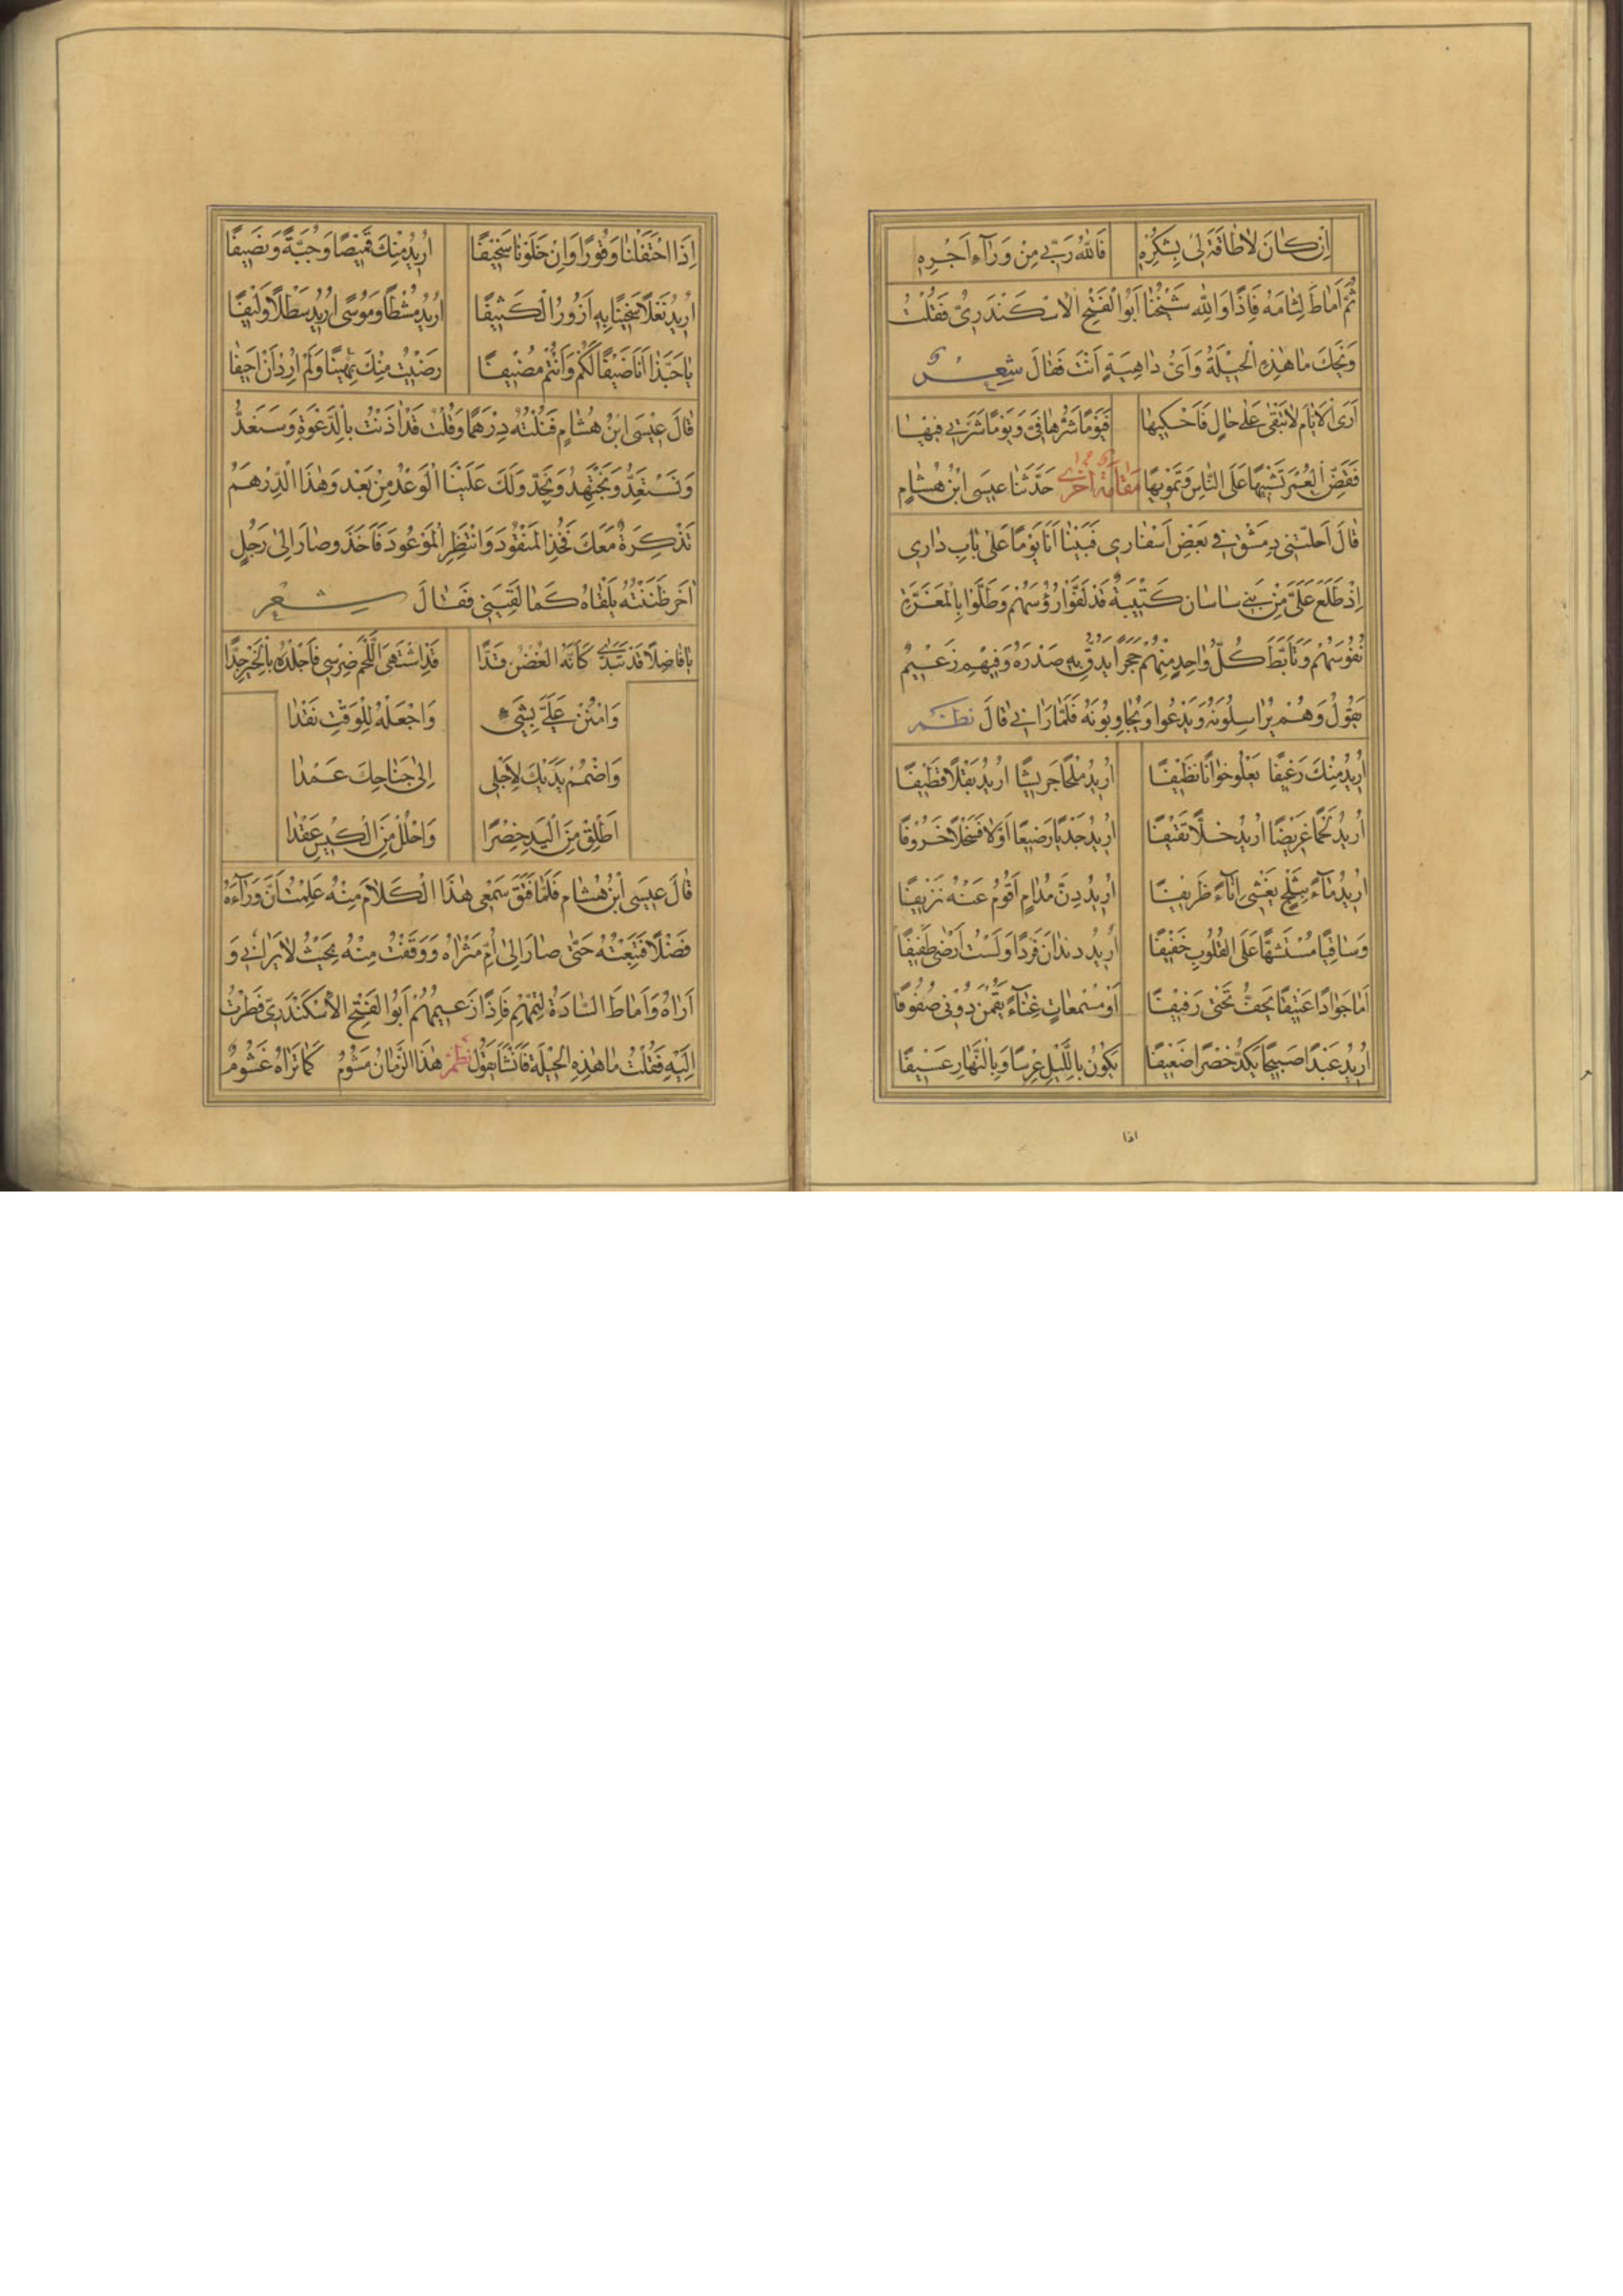 اِنْ كٰانَ لاٰ طٰاقَةَ لي بِشُكْرِهِ فَاللّٰهُ رَبّي مِنْ وَرٰآءِ اَجْرِهِ
ثُمَّ اَمٰاطَ لِثٰامَهُ فَاِذًا وَاللّٰهِ شَيْخُنٰا اَبُوا الْفَتْحِ الاِسْكَنْدَرِيُّ فَقُلْتُ
وَيْحَكَ مٰا هٰذِهِ الْحيلَةُ وَاَيُّ دٰاهِيَةٍ اَنْتَ فَقٰالَ شِعْر
اَرَى الاَيّٰامَ لاٰ تَبْقىٰ عَلىٰ حٰالٍ فَاَحْكيهٰا فَيَوْمًا شَرُّهٰا فِيَّ وَيَوْمًا شَرَّتي فيهٰا
فَقَضِّ الْعُمْرَ تَشْبيهًا عَلَى النّٰاسِ وَتَمْويهًا مَقٰامَة اُخْرى حَدَّثَنٰا عيسَى ابْنُ هُشٰامٍ
قٰالَ اَحَلَّتْني دِمَشْقَ في بَعْضِ اَسْفٰاري فَبَيْنٰا اَنَا يَوْمًا عَلىٰ بٰابِ دٰاري
اِذْ طَلَعَ عَلَيَّ مِنْ بَني سٰاسٰان كَتيبَةٌ قَدْ لَفَّوْا رُؤُسَهُمْ وَطَلَّوْا بِالْمَغَرَةِ
نُفُوسَهُمْ وَتَاَبَّطَ كُلُّ وٰاحِدٍ مِنْهُمْ حَجَرًا يَدُقُّ بِهِ صَدْرَهُ وَفيهِمْ زَعيمٌ
يَقُولُ وَهُمْ يُرٰاسِلُونَهُ وَيَدْعُوا وَيُجٰاوِبُونَهُ فَلَمّٰا رَاٰني قٰالَ نظم
اُريدُ مِنْكَ رَغيفًا يَعْلُو خِوٰانًا نَظيفًا اُريدُ مِلْحًا جَريشًا اُريدُ بَقْلًا قَطيفًا
اُريدُ لَحْمًا غَريضًا اُريدُ خَلًّا ثَقيفًا اُريدُ جَدْيًا رَضيعًا اَوْ لاٰ فَسَخْلًا خَرُوفًا
اُريدُ مٰآءً بِثَلْجٍ يَغْشىٰ اِنٰآءً ظَريفًا اُريدُ دِنَّ مُدٰامٍ اَقُومُ عَنْهُ نَزيفًا
وَسٰاقِيًا مُسْتَشهًّا عَلَى الْقُلُوبِ خَفيفًا اُريدُ دندان فَرْدًا وَلَسْتُ اَرْضىٰ طَفيفًا
اَمٰا جَوٰادًا عَتيقًا يَحِفُّ تَحْتي رَفيفًا اَوْ مُسْمِعٰاتٍ غِنٰآءً يَقُمْنَ دُوني صُفُوفًا
اُريدُ عَبْدًا صَبيحًا يَكُدُّ خصْرًا ضَعيفًا يَكُونُ بِاللَّيْلِ عِرْسًا وَبِالنَّهٰارِ عَسيفًا
اذا
اِذَا احْتَفَلْنٰا وَقُورًا وَاِنْ خَلَوْنٰا سَخيفًا اُريدُ مِنْكَ قَميصًا وَجُبَّةً وَنَصيفًا
اُريدُ نَعْلًا سَخينًا بِهِ اَزُورُ الْكَثيفًا اُريدُ مُشْطًا وَمُوسًى اُريدُ سَطْلًا وَليفًا
يٰا حَبَّذٰا اَنَا ضَيْفًا لَكُمْ وَاَنْتُمْ مُضيفًا رَضيتُ مِنْكَ بِهٰينًا وَلَمْ اُرِدْ اَنْ اَحيفٰا
قٰالَ عيسَى ابْنُ هُشٰامٍ فَنُلْتُهُ دِرْهَمًا وَقُلْتُ قَدْ اٰذَنْتُ بِالدَّعْوَةِ وَسَنَعُدُّ
وَنَسْتَعِدُّ وَنَجْتَهِدُ وَنَجِدُّ وَلَكَ عَلَيْنَا الْوَعْدُ مِنْ بَعْدُ وَهٰذَا الدِّرْهَمُ
تَذْكِرَةٌ مَعَكَ فَخُذِ الْمَنْقُودَ وَانْتَظِرِ الْمَوْعُودَ فَاَخَذَ وصٰارَ اِلىٰ رَجُلٍ
اٰخَرَ ظَنَنْتُهُ يَلْقٰاهُ كَمٰا لَقِيَني فَقٰالَ شعر
يٰا فٰاضِلًا قَدْ تَبَدّىٰ كَاَنَّهُ الْغُصْنُ قَدًّا قَدِ اشْتَهَى اللَّحْمَ ضِرْسي فَاجْلِدْهُ بِالْخُبْزِ جِدًّا
وَامْنُنْ عَلَيَّ بِشَيْءٍ وَاجْعَلْهُ لِلْوَقْتِ نَقْدًا
وَاضْمُمْ يَدَيْكَ لِاَجْلي اِلىٰ جَنٰاحِكَ عَمْدًا
اَطْلِقْ مِنَ الْيَدِ خِصْرًا وَاحْلُلْ مِنَ الْكيسِ عَقْدًا
قٰالَ عيسَى ابْنُ هُشٰامٍ فَلَمّٰا فَتَقَ سَمْعي هٰذَا الْكَلاٰمُ مِنْهُ عَلِمْتُ اَنَّ وَرٰآءَهُ
فَضْلًا فَتَبِعْتُهُ حَتّىٰ صٰارَ اِلىٰ اُمِّ مَثْوٰاهُ وَوَقَفْتُ مِنْهُ بِحَيْثُ لاٰ يَرٰاني وَ
اَرٰاهُ وَاَمٰاطَ السّٰادَةُ لِثِمَهُمْ فَاِذًا زَعيمُهُمْ اَبُوا الْفَتْحِ الاِسْكَنْدَرِيّ فَطِرْتُ
اِلَيْهِ فَقُلْتُ مٰا هٰذِهِ الْحيلَة فَاَنْشَا يَقُولُ نظم هٰذَا الزَّمٰانُ مَشُومٌ كَمٰا تَرٰاهُ غَشُومٌ